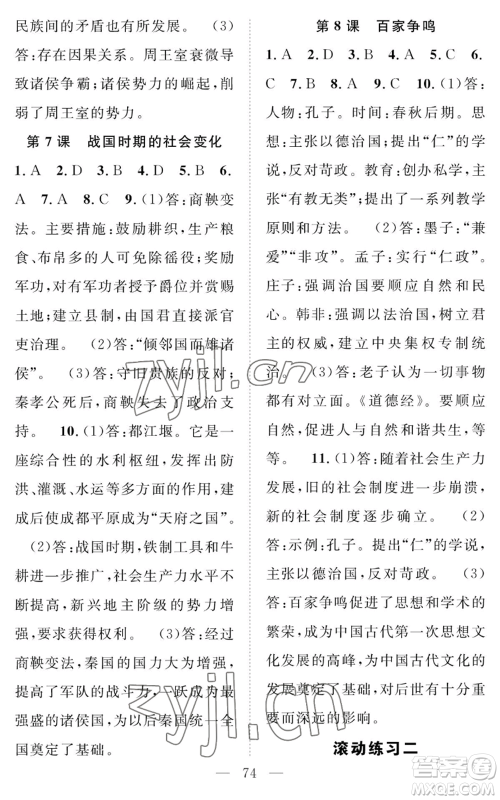 民族间的矛盾也有发生。 (3)答:
存在因果关系。周王室衰微导
致诸侯争霸;诸侯势力的崛起,削
弱了周王室的势力。
第 7 课 战国时期的社会变化
1. A 2. D 3. B 4. B 5. B 6.
A 7. A 8. C 9. (1)答:商鞅变
法。主要措施:鼓励耕织,生产粮
食、布帛多的人可免除徭役;奖励
军功,有战功者授予爵位并赏赐
土地;建立县制,由国君直接派官
吏治理。 (2)答:“倾邻国而雄诸
侯”。 (3)答:守旧贵族的反对;
秦孝公死后,商鞅失去了政治支
持。 10. (1)答:都江堰。它是一
座综合性的水利枢纽,发挥了防
洪、灌溉、水运等多方面的作用,
建成后使成都平原成为“天府之国”。
(2)答:战国时期,铁制工具和牛
耕进一步推广,社会生产力水平不
断提高,新兴地主阶级的势力增
强,要求获得权利。 (3)答:通过
商鞅变法,秦国的国力大为增强,
提高了军队的战斗力,一跃成为最
强盛的诸侯国,为后秦统一全
国奠定了基础。
第 8 课 百家争鸣
1. A 2. D 3. B 4. A 5. C 6.
C 7. B 8. C 9. C 10. (1)答:
人物:孔子。时间:春秋后期。思
想:主张以德治国,提出“仁”的学
说,反对苛政。教育:创办私学,主
张“有教无类”,提出了一系列教学
原则和方法。 (2)答:墨子:“兼
爱”“非攻”。孟子:实行“仁政”。
庄子:强调治国要顺应自然和民
心。韩非:强调以法治国,树立君
主的权威,建立中央集权专制统
治。 (3)答:老子认为一切事物
都有对立面。《道德经》。要顺应
自然,促进人与自然和谐相处,等
等。 11. (1)答:随着社会生产力
发展,旧的社会制度进一步崩溃,
新的社会制度逐步确立。 (2)
答:示例:孔子。提出“仁”的学说,
主张以德治国,反对苛政。 (3)
答:百家争鸣促进了思想和学术的
繁荣,成为中国古代第一次思想文
化发展的高峰,为中国古代文化的
发展奠定了基础,对后世有十分重
要而深远的影响。
滚动练习二
74
zyjl.cn